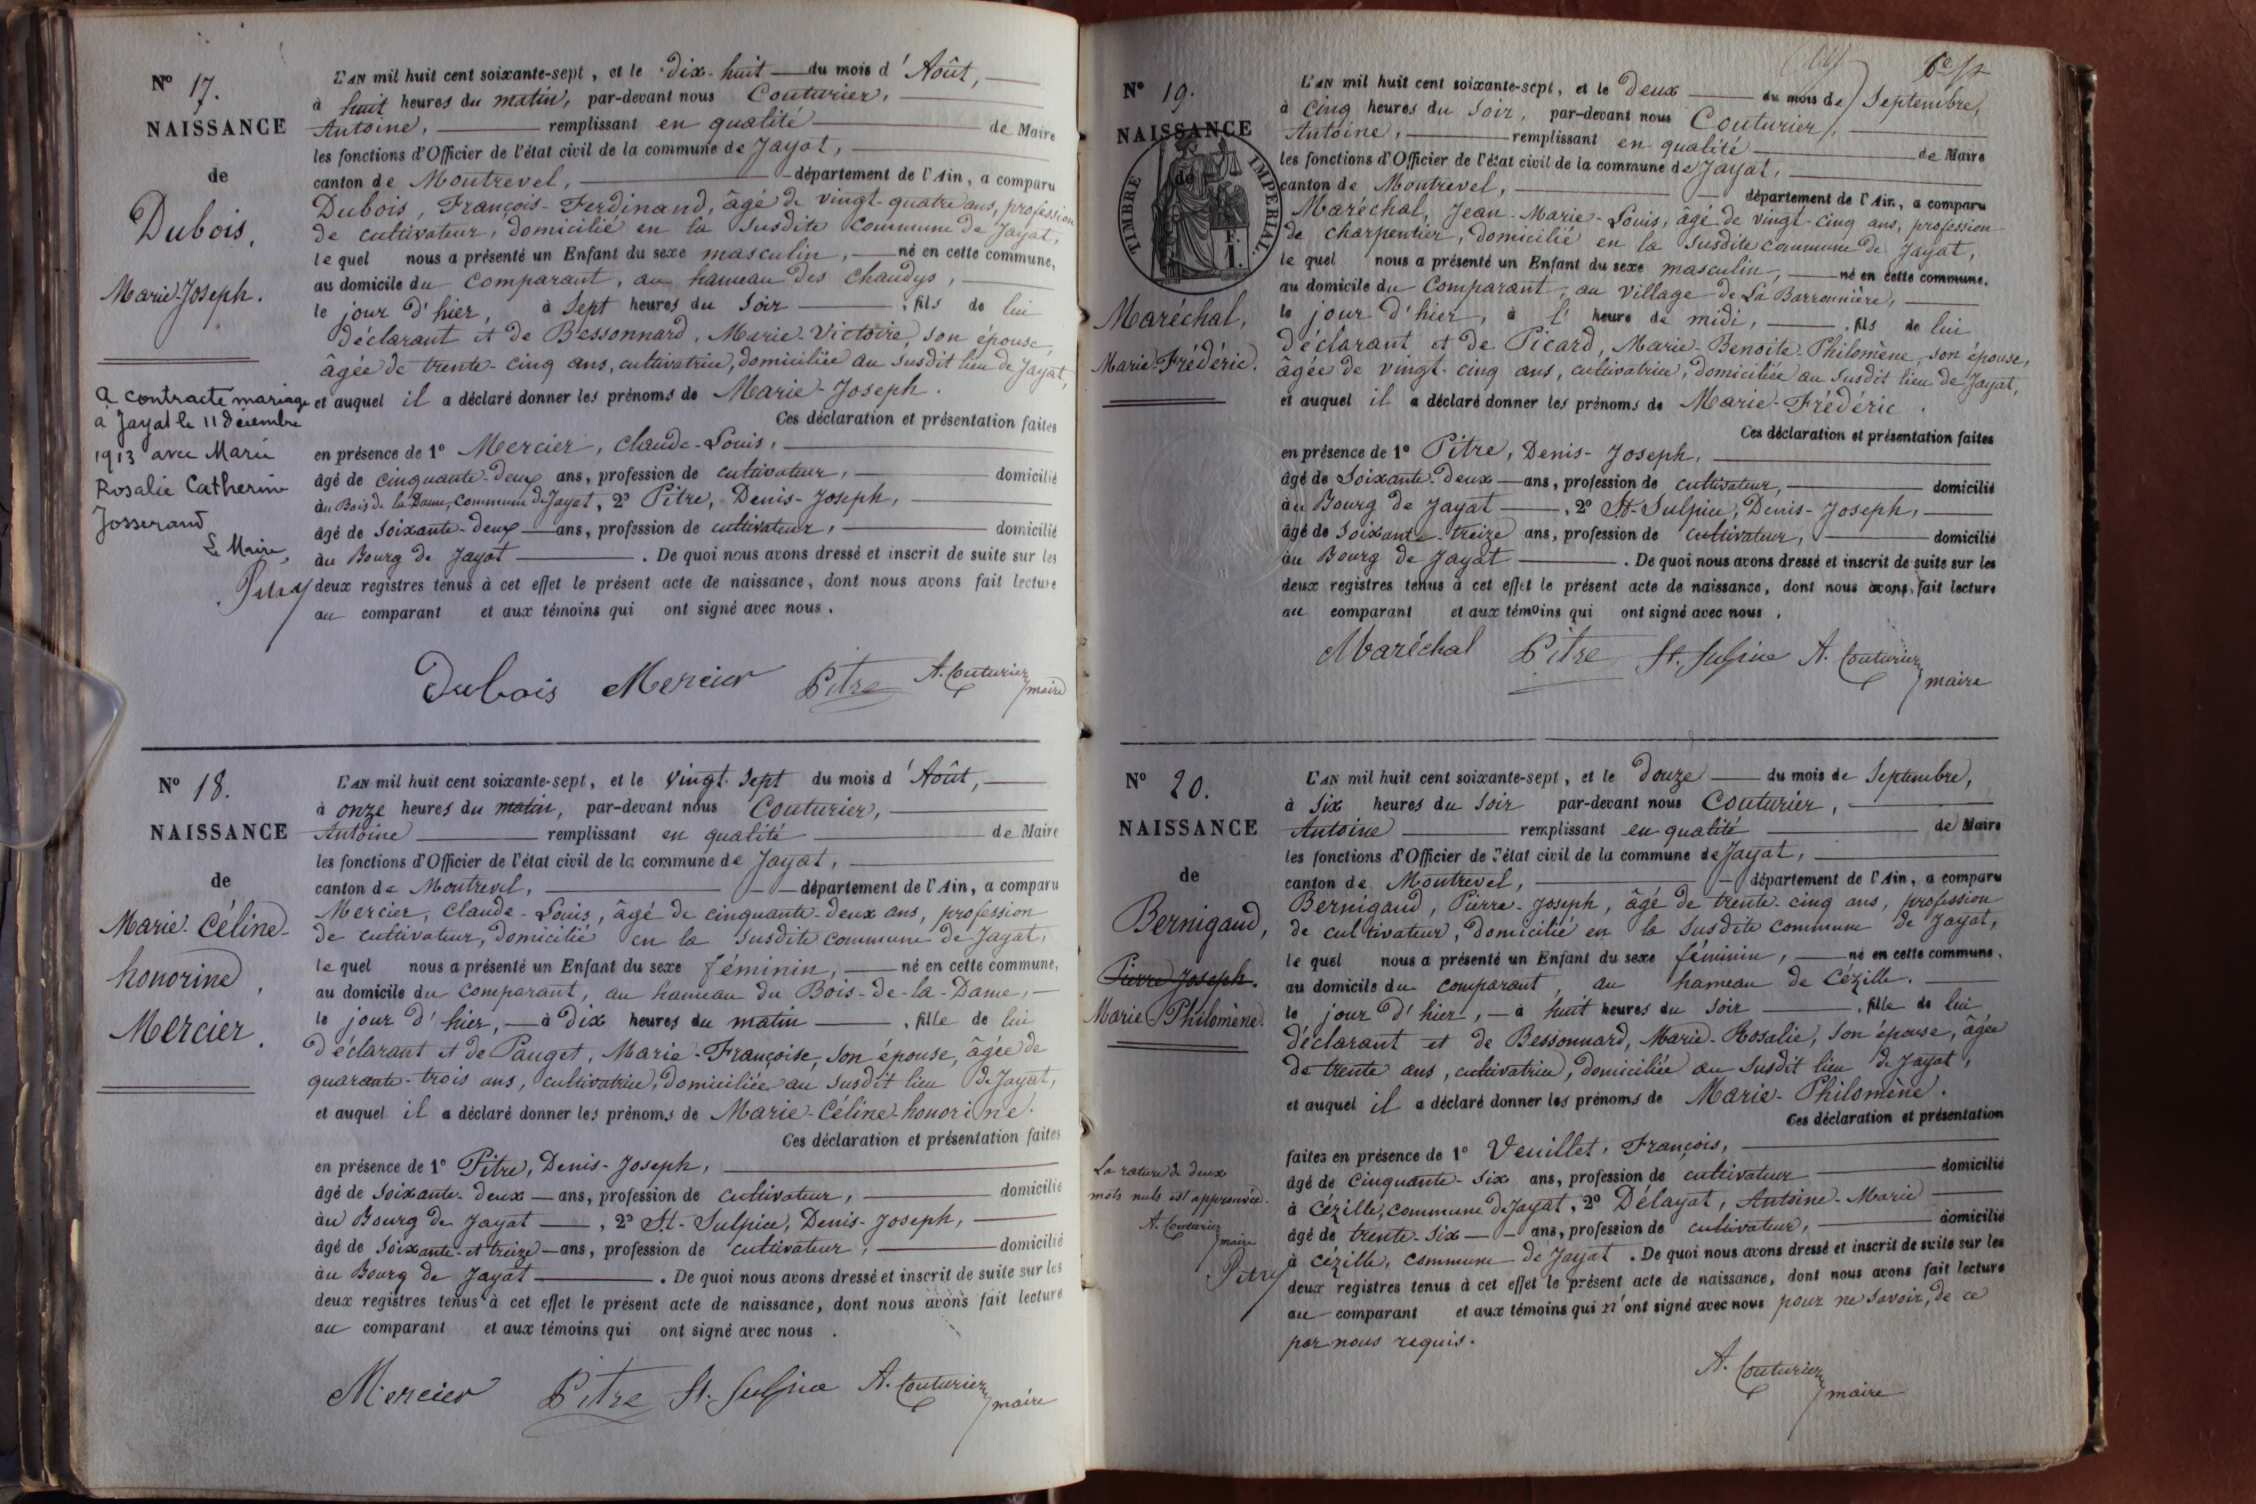 Nº 17.
NAISSANCE
de
Dubois,
Marie-Joseph.
a contracté mariage
à Jayat le 11 décembre
1913 avec Marie
Rosalie Catherine
Josserand
Le Maire,
Pitre
L'AN mil huit cent soixante-sept, et le dix-huit du mois d'Août,
à huit heures du matin, par-devant nous Couturier,
Antoine, remplissant en qualité de Maire
les fonctions d'Officier de l'état civil de la commune de Jayat,
canton de Montrevel, département de l'Ain, a comparu
Dubois, François-Ferdinand, âgé de vingt-quatre ans, profession
de cultivateur, domicilié en la susdite commune de Jayat,
lequel nous a présenté un Enfant du sexe masculin, né en cette commune,
au domicile du comparant, au hameau des Chaudys,
le jour d'hier, à sept heures du soir, fils de lui
déclarant et de Bessonnard, Marie-Victoire, son épouse,
âgée de trente-cinq ans, cultivatrice, domiciliée au susdit lieu de Jayat,
et auquel il a déclaré donner les prénoms de Marie-Joseph.
Ces déclaration et présentation faites
en présence de 1º Mercier, Claude-Louis,
âgé de cinquante-deux ans, profession de cultivateur, domicilié
au Bois de la Dame, commune de Jayat, 2º Pitre, Denis-Joseph,
âgé de soixante-deux ans, profession de cultivateur, domicilié
au Bourg de Jayat. De quoi nous avons dressé et inscrit de suite sur les
deux registres tenus à cet effet le présent acte de naissance, dont nous avons fait lecture
au comparant et aux témoins qui ont signé avec nous.
Dubois Mercier Pitre A. Couturier maire
Nº 18.
NAISSANCE
de
Marie-Céline-
honorine
Mercier.
L'AN mil huit cent soixante-sept, et le vingt-sept du mois d'Août,
à onze heures du matin, par-devant nous Couturier,
Antoine remplissant en qualité de Maire
les fonctions d'Officier de l'état civil de la commune de Jayat,
canton de Montrevel, département de l'Ain, a comparu
Mercier, Claude-Louis, âgé de cinquante-deux ans, profession
de cultivateur, domicilié en la susdite commune de Jayat,
lequel nous a présenté un Enfant du sexe féminin, né en cette commune,
au domicile du comparant, au hameau du Bois-de-la-Dame,
le jour d'hier, à dix heures du matin, fille de lui
déclarant et de Pauget, Marie-Françoise, son épouse, âgée de
quarante-trois ans, cultivatrice, domiciliée au susdit lieu de Jayat,
et auquel il a déclaré donner les prénoms de Marie-Céline-honorine.
Ces déclaration et présentation faites
en présence de 1º Pitre, Denis-Joseph,
âgé de soixante-deux ans, profession de cultivateur, domicilié
au Bourg de Jayat, 2º St-Sulpice, Denis-Joseph,
âgé de soixante-et-treize ans, profession de cultivateur, domicilié
au Bourg de Jayat. De quoi nous avons dressé et inscrit de suite sur les
deux registres tenus à cet effet le présent acte de naissance, dont nous avons fait lecture
au comparant et aux témoins qui ont signé avec nous.
Mercier Pitre St. Sulpice A. Couturier maire
Nº 19.
NAISSANCE
de
TIMBRE IMPERIAL
Maréchal,
Marie-Frédéric.
L'AN mil huit cent soixante-sept, et le deux du mois de Septembre,
à cinq heures du soir, par-devant nous Couturier,
Antoine, remplissant en qualité de Maire
les fonctions d'Officier de l'état civil de la commune de Jayat,
canton de Montrevel, département de l'Ain, a comparu
Maréchal, Jean-Marie-Louis, âgé de vingt-cinq ans, profession
de charpentier, domicilié en la susdite commune de Jayat,
lequel nous a présenté un Enfant du sexe masculin, né en cette commune,
au domicile du comparant, au village de La Barronnière,
le jour d'hier, à l'heure de midi, fils de lui
déclarant et de Picard, Marie-Benoite-Philomène, son épouse,
âgée de vingt-cinq ans, cultivatrice, domiciliée au susdit lieu de Jayat,
et auquel il a déclaré donner les prénoms de Marie-Frédéric.
Ces déclaration et présentation faites
en présence de 1º Pitre, Denis-Joseph,
âgé de soixante-deux ans, profession de cultivateur, domicilié
au Bourg de Jayat, 2º St-Sulpice, Denis-Joseph,
âgé de soixante-treize ans, profession de cultivateur, domicilié
au Bourg de Jayat. De quoi nous avons dressé et inscrit de suite sur les
deux registres tenus à cet effet le présent acte de naissance, dont nous avons fait lecture
au comparant et aux témoins qui ont signé avec nous.
Maréchal Pitre St. Sulpice A. Couturier maire
Nº 20.
NAISSANCE
de
Bernigaud,
Pierre Joseph.
Marie Philomène.
La rature de deux
mots nuls est approuvée.
A. Couturier
maire
Pitre
L'AN mil huit cent soixante-sept, et le douze du mois de Septembre,
à six heures du soir par-devant nous Couturier,
Antoine remplissant en qualité de Maire
les fonctions d'Officier de l'état civil de la commune de Jayat,
canton de Montrevel, département de l'Ain, a comparu
Bernigaud, Pierre-Joseph, âgé de trente-cinq ans, profession
de cultivateur, domicilié en la susdite commune de Jayat,
lequel nous a présenté un Enfant du sexe féminin, né en cette commune,
au domicile du comparant, au hameau de Cézille.
le jour d'hier, à huit heures du soir, fille de lui
déclarant et de Bessonnard, Marie-Rosalie, son épouse, âgée
de trente ans, cultivatrice, domiciliée au susdit lieu de Jayat,
et auquel il a déclaré donner les prénoms de Marie-Philomène.
Ces déclaration et présentation
faites en présence de 1º Veuillet, François,
âgé de cinquante-six ans, profession de cultivateur domicilié
à Cézille, commune de Jayat, 2º Délayat, Antoine-Marie
âgé de trente-six ans, profession de cultivateur, domicilié
à cézille, commune de Jayat. De quoi nous avons dressé et inscrit de suite sur les
deux registres tenus à cet effet le présent acte de naissance, dont nous avons fait lecture
au comparant et aux témoins qui n'ont signé avec nous pour ne savoir, de ce
par nous requis.
A. Couturier
maire